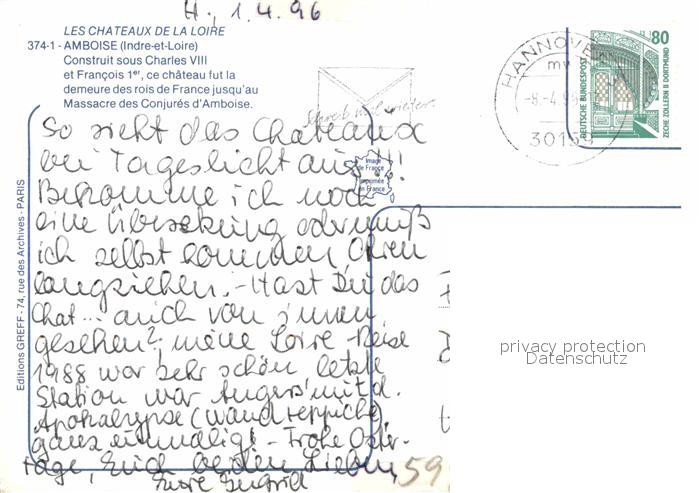 H., 1.4.96
LES CHATEAUX DE LA LOIRE
374-1 - AMBOISE (Indre-et-Loire)
Construit sous Charles VIII
et François 1er, ce château fut la
demeure des rois de France jusqu'au
Massacre des Conjurés d'Amboise.
Schreib mal wieder
So sieht das Chateaux
bei Tageslicht aus!!!
Bekomme ich noch
eine Übersetzung oder muß
ich selbst kommen, Ohren
langziehen. - Hast Du das
Chat... auch von innen
gesehen? meine Loire-Reise
1988 war sehr schön letzte
Station war Angers mit d.
Apokalypse (Wandteppiche)
ganz einmalig! - Frohe Oster-
tage, Euch beiden Lieben,
Eure Ingrid
59
Image
de France
Imprimée
en France
Editions GREFF - 74, rue des Archives - PARIS
HANNOVER
mv
-8.-4.96
30159
80
DEUTSCHE BUNDESPOST
ZECHE ZOLLERN II DORTMUND
privacy protection
Datenschutz